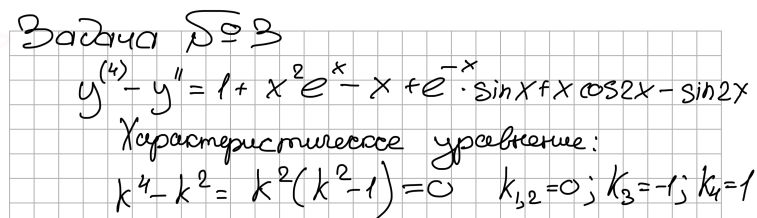 Задача № 3
y⁽⁴⁾ - y'' = 1 + x²eˣ - x + e⁻ˣ · sin x + x cos 2x - sin 2x
Характеристическое уравнение:
k⁴ - k² = k²(k² - 1) = 0   k₁,₂ = 0; k₃ = -1; k₄ = 1